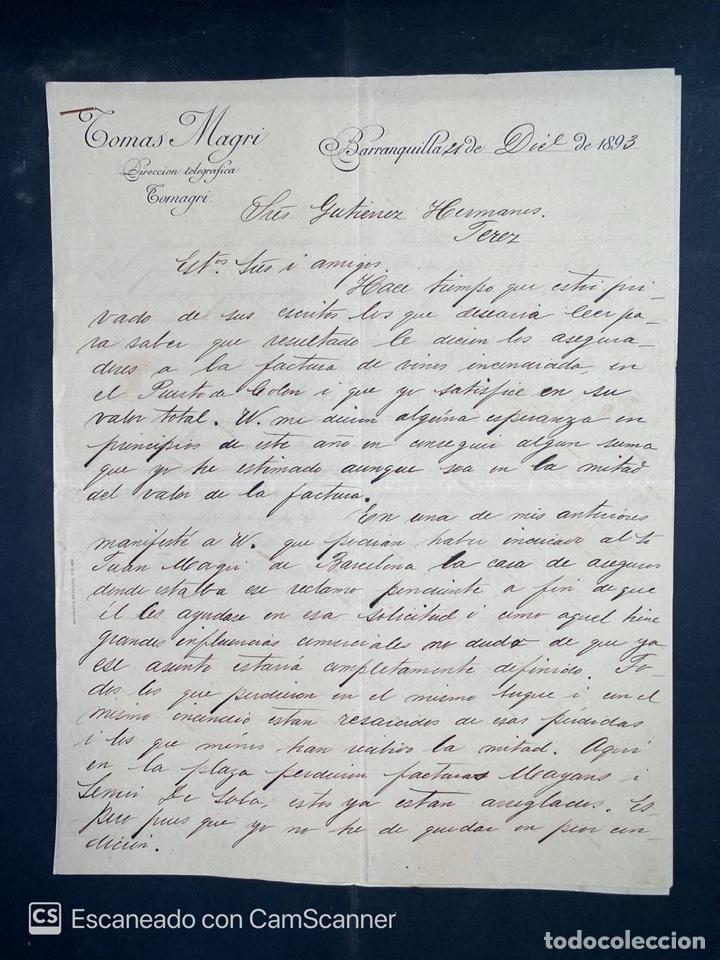 Tomas Magri
Direccion telegrafica
Tomagri.
Barranquilla 21 de Dice de 1893
Sres Gutierrez Hermanos.
Jerez
Est.os Sres i amigos
Hace tiempo que estoi pri-
vado de sus escritos los que desearia leer pa-
ra saber que resultado le dieron los asegura-
dores a la factura de vinos incendiada, en
el Puerto de Colon i que yo satisfice en su
valor total. V. me dieron alguna esperanza en
principios de este año en conseguir algun suma
que yo he estimado aunque sea en la mitad
del valor de la factura.
En una de mis anteriores
manifesté a V. que podian haber indicado al Sr
Juan Magri de Barcelona la casa de aseguros
donde estaba ese reclamo pendiente a fin de que
él les ayudase en esa solicitud i como aquel tiene
grandes influencias comerciales no dudo de que ya
ese asunto estaria completamente definido. To-
dos los que perdieron en el mismo buque i con el
mismo incendio estan resarcidos de esas pérdidas
i los que ménos han recibido la mitad. Aqui
en la plaza perdieron facturas Mayans i
De Sola, estos ya estan arreglados. Es-
pero pues que yo no he de quedar en peor con-
dicion.
CS Escaneado con CamScanner
todocoleccion